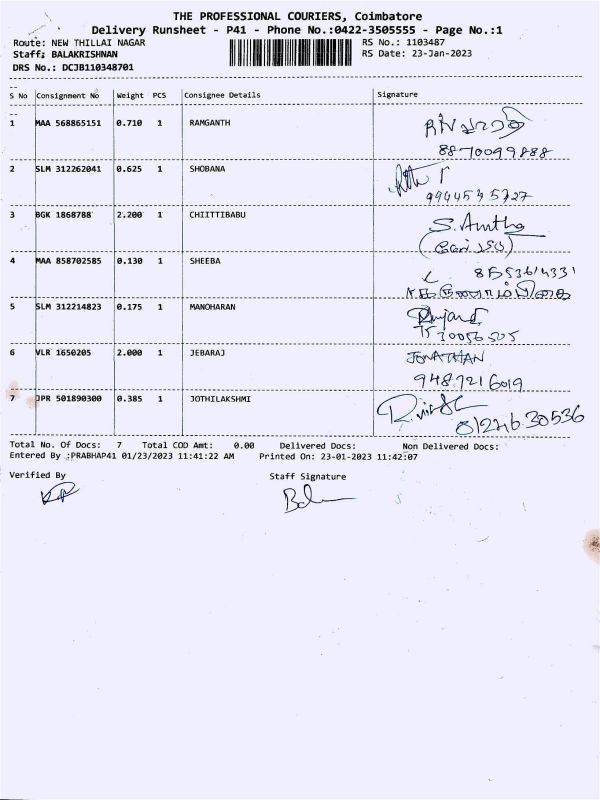 THE PROFESSIONAL COURIERS, Coimbatore
Delivery Runsheet - P41 - Phone No.:0422-3505555 - Page No.:1
Route: NEW THILLAI NAGAR RS No.: 1103487
Staff: BALAKRISHNAN RS Date: 23-Jan-2023
DRS No.: DCJB110348701
S No Consignment No Weight PCS Consignee Details Signature
1 MAA 568865151 0.710 1 RAMGANTH
8870099888
2 SLM 312262041 0.625 1 SHOBANA
9944535727
3 BGK 1868788 2.200 1 CHIITTIBABU S. Amtha
4 MAA 858702585 0.130 1 SHEEBA
5 SLM 312214823 0.175 1 MANOHARAN
6 VLR 1650205 2.000 1 JEBARAJ JONATHAN
9487216019
7 JPR 501890300 0.385 1 JOTHILAKSHMI
8122630536
Total No. Of Docs: 7 Total COD Amt: 0.00 Delivered Docs: Non Delivered Docs:
Entered By :PRABHAP41 01/23/2023 11:41:22 AM Printed On: 23-01-2023 11:42:07
Verified By Staff Signature